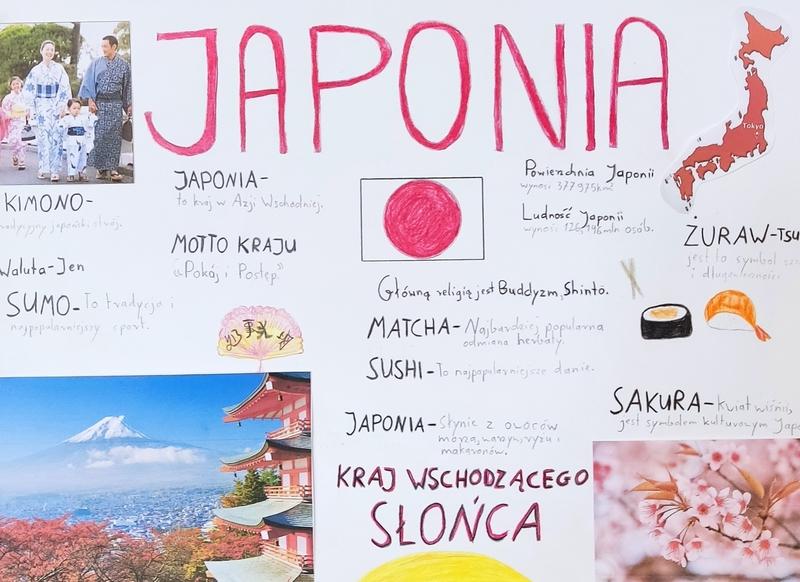 JAPONIA
Tokyo
KIMONO-
tradycyjny japoński strój.
Waluta-Jen
SUMO-To tradycja i
najpopularniejszy sport.
JAPONIA-
to kraj w Azji Wschodniej.
MOTTO KRAJU
"Pokój i Postęp"
Powierzchnia Japonii
wynosi 377975km²
Ludność Japonii
wynosi 126,146mln osób.
ŻURAW-TSU
jest to symbol
i długowieczności
Główną religią jest Buddyzm, Shinto.
MATCHA-Najbardziej popularna
odmiana herbaty.
SUSHI-To najpopularniejsze danie.
JAPONIA-Słynie z owoców
morza, warzyw, ryżu i
makaronów.
SAKURA-kwiat wiśni,
jest symbolem kulturowym Japo
KRAJ WSCHODZĄCEGO
SŁOŃCA